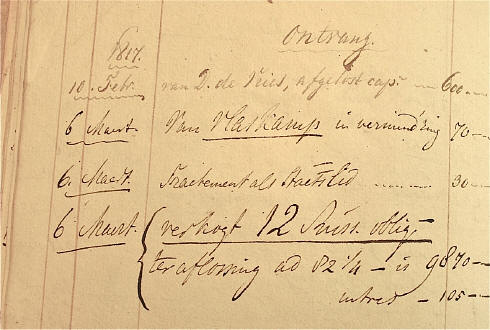 Ontvang.
1817.
10. Febr. van D. de Vries, afgelost cap. — 600 —
6 Maert. Van Vlaskamp in vermindring 70 —
6. Maert. Tractement als Staetslid 30 —
6 Maert. verkogt 12 Russ. oblig.
ter aflossing ad 82 1/4 — is 9870 —
intres — 105 —